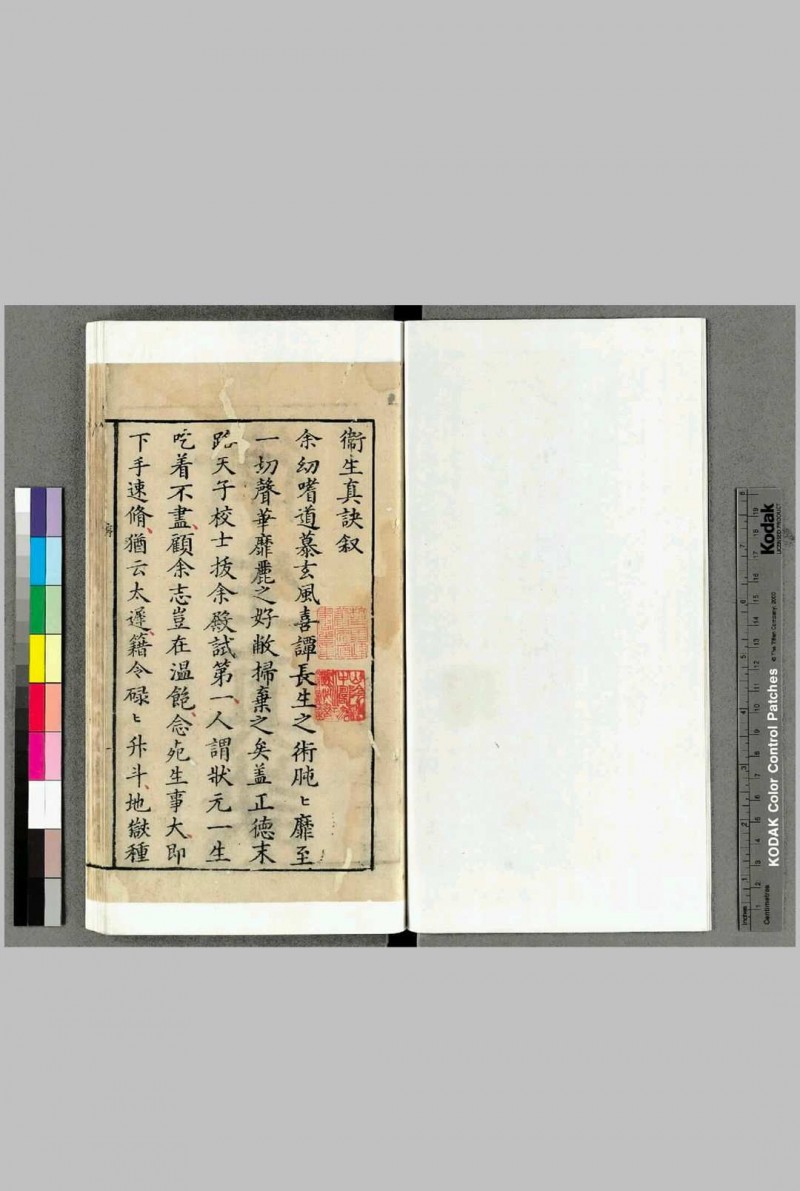 衞生真訣叙
余幼嗜道慕玄風喜譚長生之術肫〻靡至
一切聲華靡麗之好敝掃棄之矣蓋正德末
天子校士拔余殿試第一人謂狀元一生
吃着不盡顧余志豈在溫飽念死生事大即
下手速脩猶云太遲籍令碌〻升斗地嶽種
Kodak
LICENSED PRODUCT
KODAK Color Control Patches
© The Tiffen Company, 2000
Inches
Centimetres